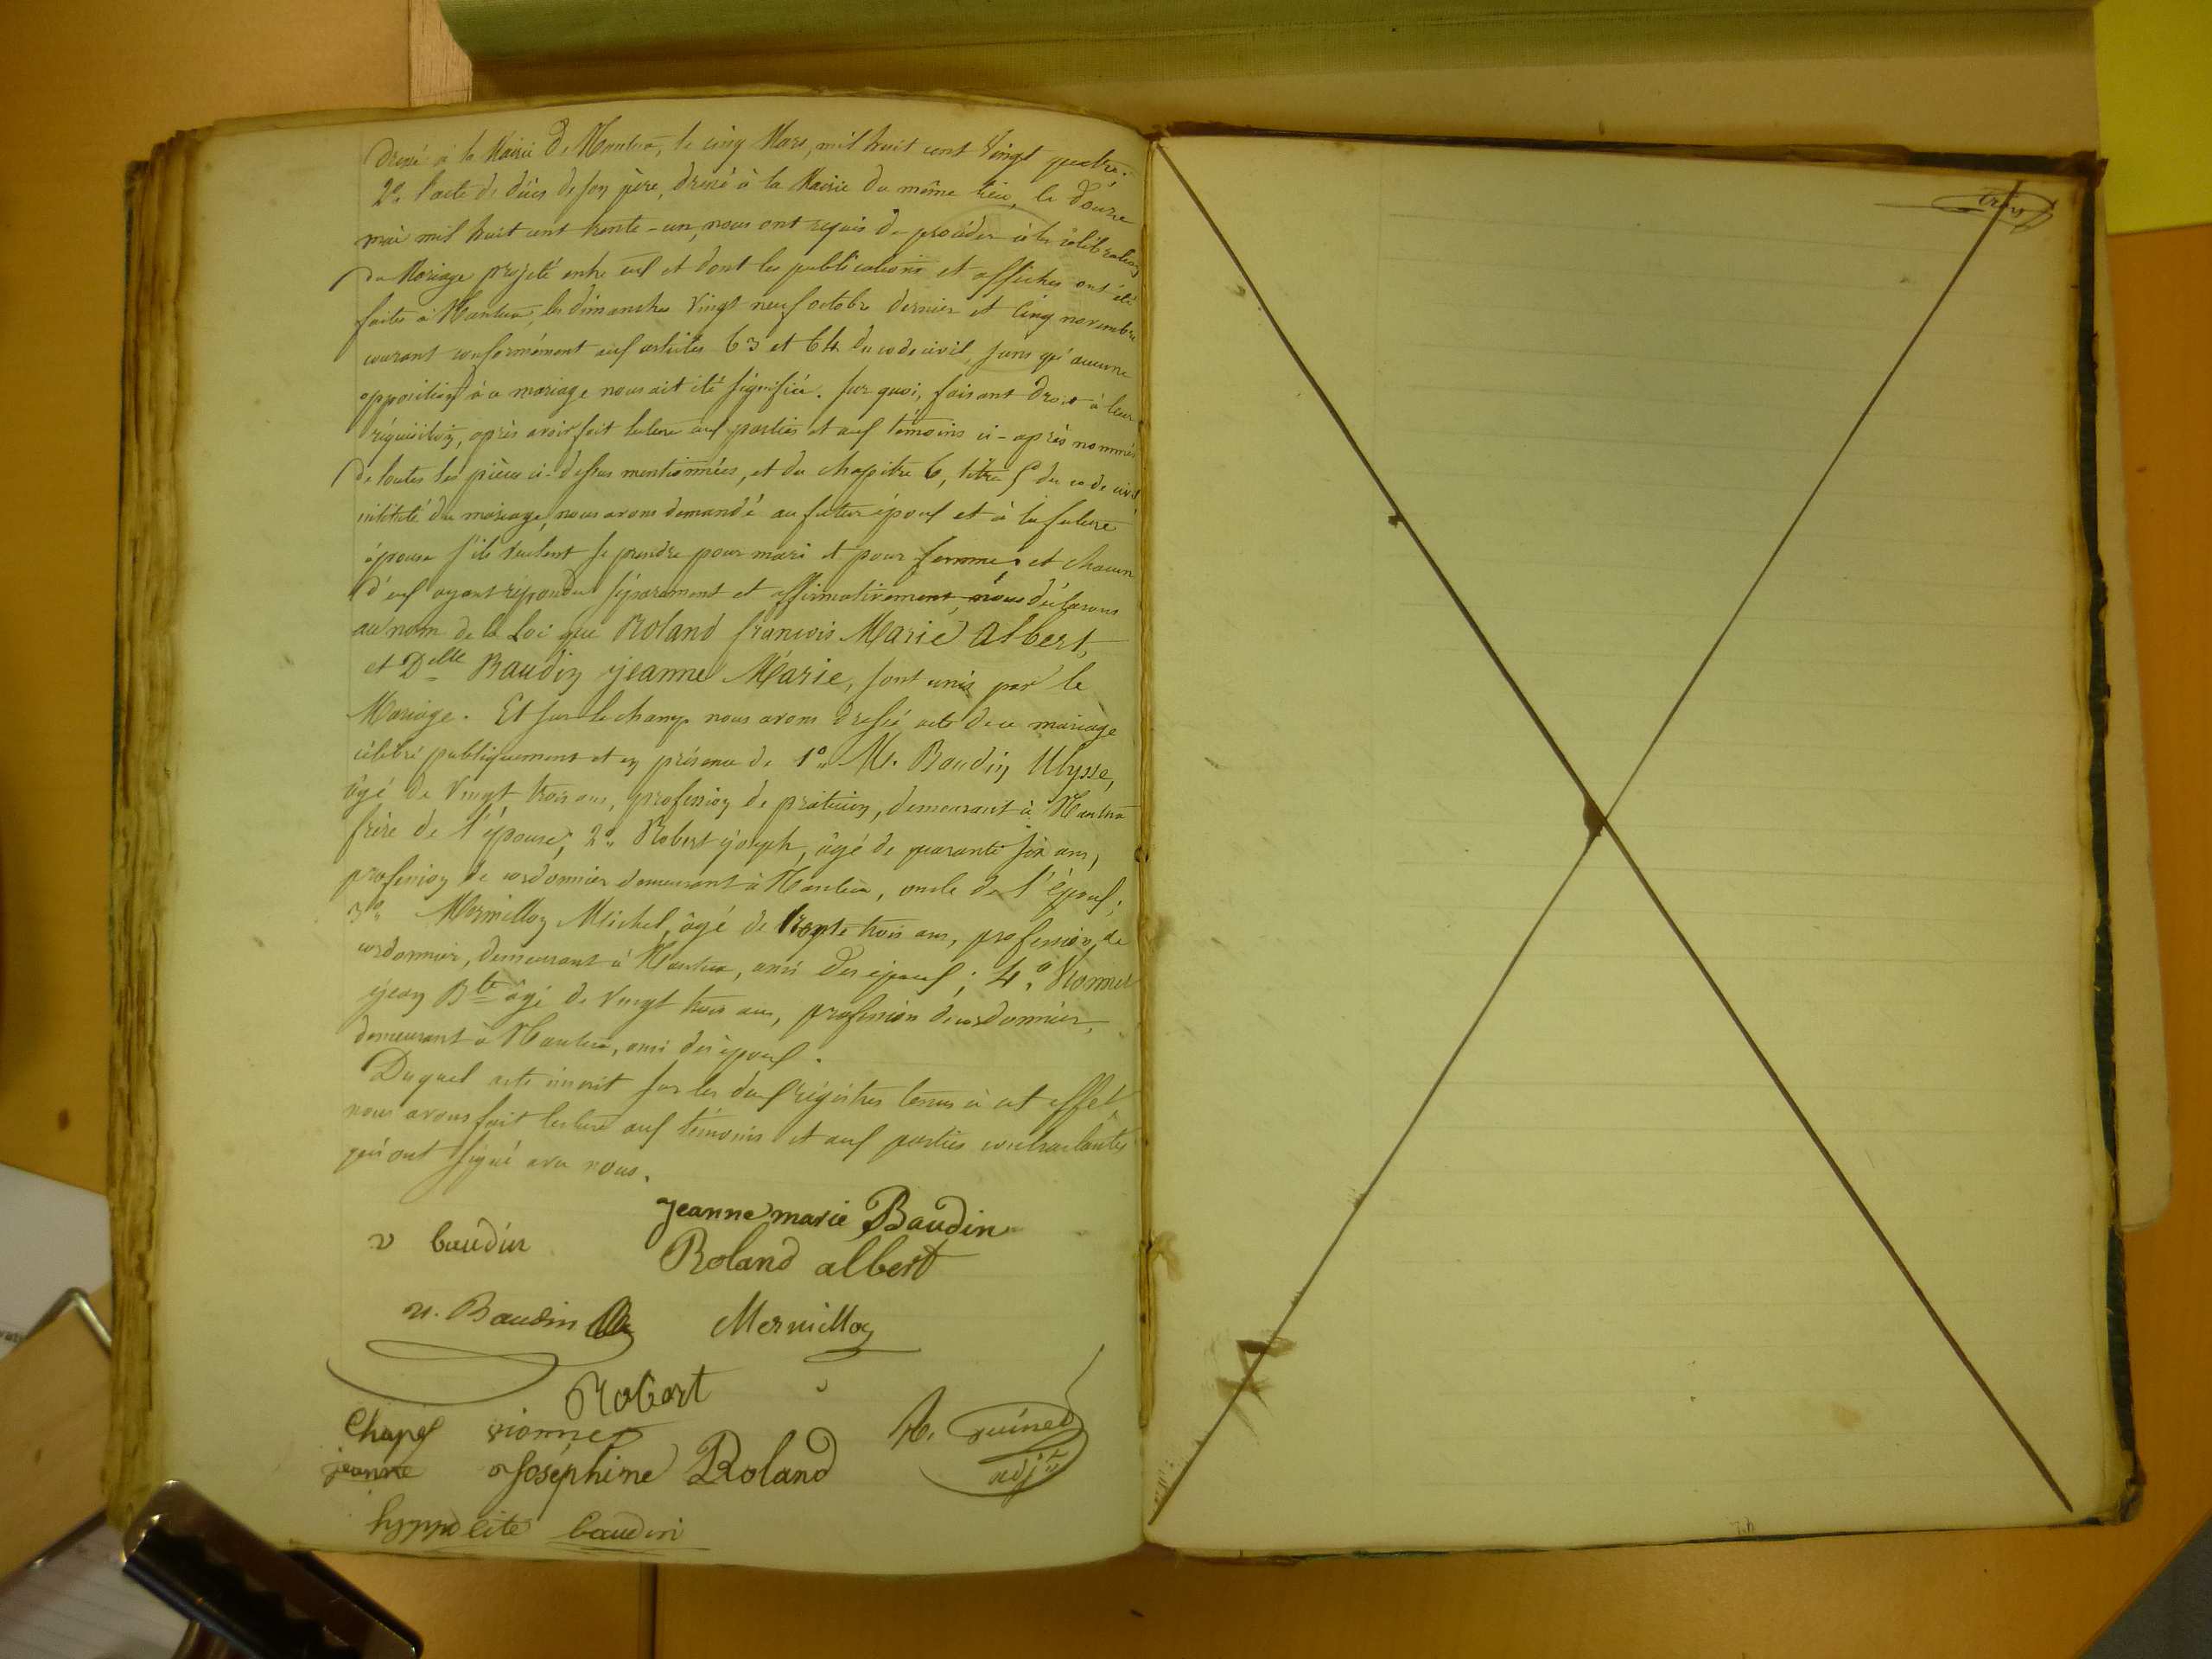 Dressé à la Mairie de Nantua, le cinq Mars, mil huit cent Vingt quatre.
2° l'acte de décès de son père, dressé à la Mairie du même lieu, le Douze
mai mil huit cent trente-un, nous ont requis de procéder à la célébration
du Mariage projeté entre eux et dont les publications et affiches ont été
faites à Nantua, les dimanches Vingt neuf octobre dernier et Cinq novembre
courant conformément aux articles 63 et 64 du code civil, sans qu'aucune
opposition à ce mariage nous ait été signifiée. Sur quoi, faisant droit à leur
réquisition, après avoir fait lecture aux parties et aux témoins ci-après nommés
de toutes les pièces ci-dessus mentionnées, et du chapitre 6, titre 5 du code civil
intitulé du mariage, nous avons demandé au futur époux et à la future
épouse s'ils veulent se prendre pour mari et pour femme; et chacun
d'eux ayant répondu séparément et affirmativement, nous déclarons
au nom de la Loi que Roland françois Marie Albert,
et Delle Baudin jeanne Marie, sont unis par le
Mariage. Et sur le champ nous avons dressé acte de ce mariage
célébré publiquement et en présence de 1° M. Baudin Ulysse,
âgé de Vingt trois ans, profession de praticien, demeurant à Nantua
frère de l'épouse; 2° Robert joseph, âgé de quarante six ans,
profession de cordonnier demeurant à Nantua, oncle de l'époux;
3° Mermillon Michel, âgé de trente trois ans, profession de
cordonnier, demeurant à Nantua, ami des époux; 4° Vionnet
jean Bte âgé de Vingt trois ans, profession de cordonnier,
demeurant à Nantua, ami des époux.
Duquel acte inscrit sur les deux régistres tenus à cet effet,
nous avons fait lecture aux témoins et aux parties contractantes
qui ont signé avec nous.
jeanne marie Baudin
v baudin
Roland albert
u. Baudin
Mermillon
Robert
Chapel vionnet
jeanne Joséphine Roland
adjt
hyppolite baudin
trois